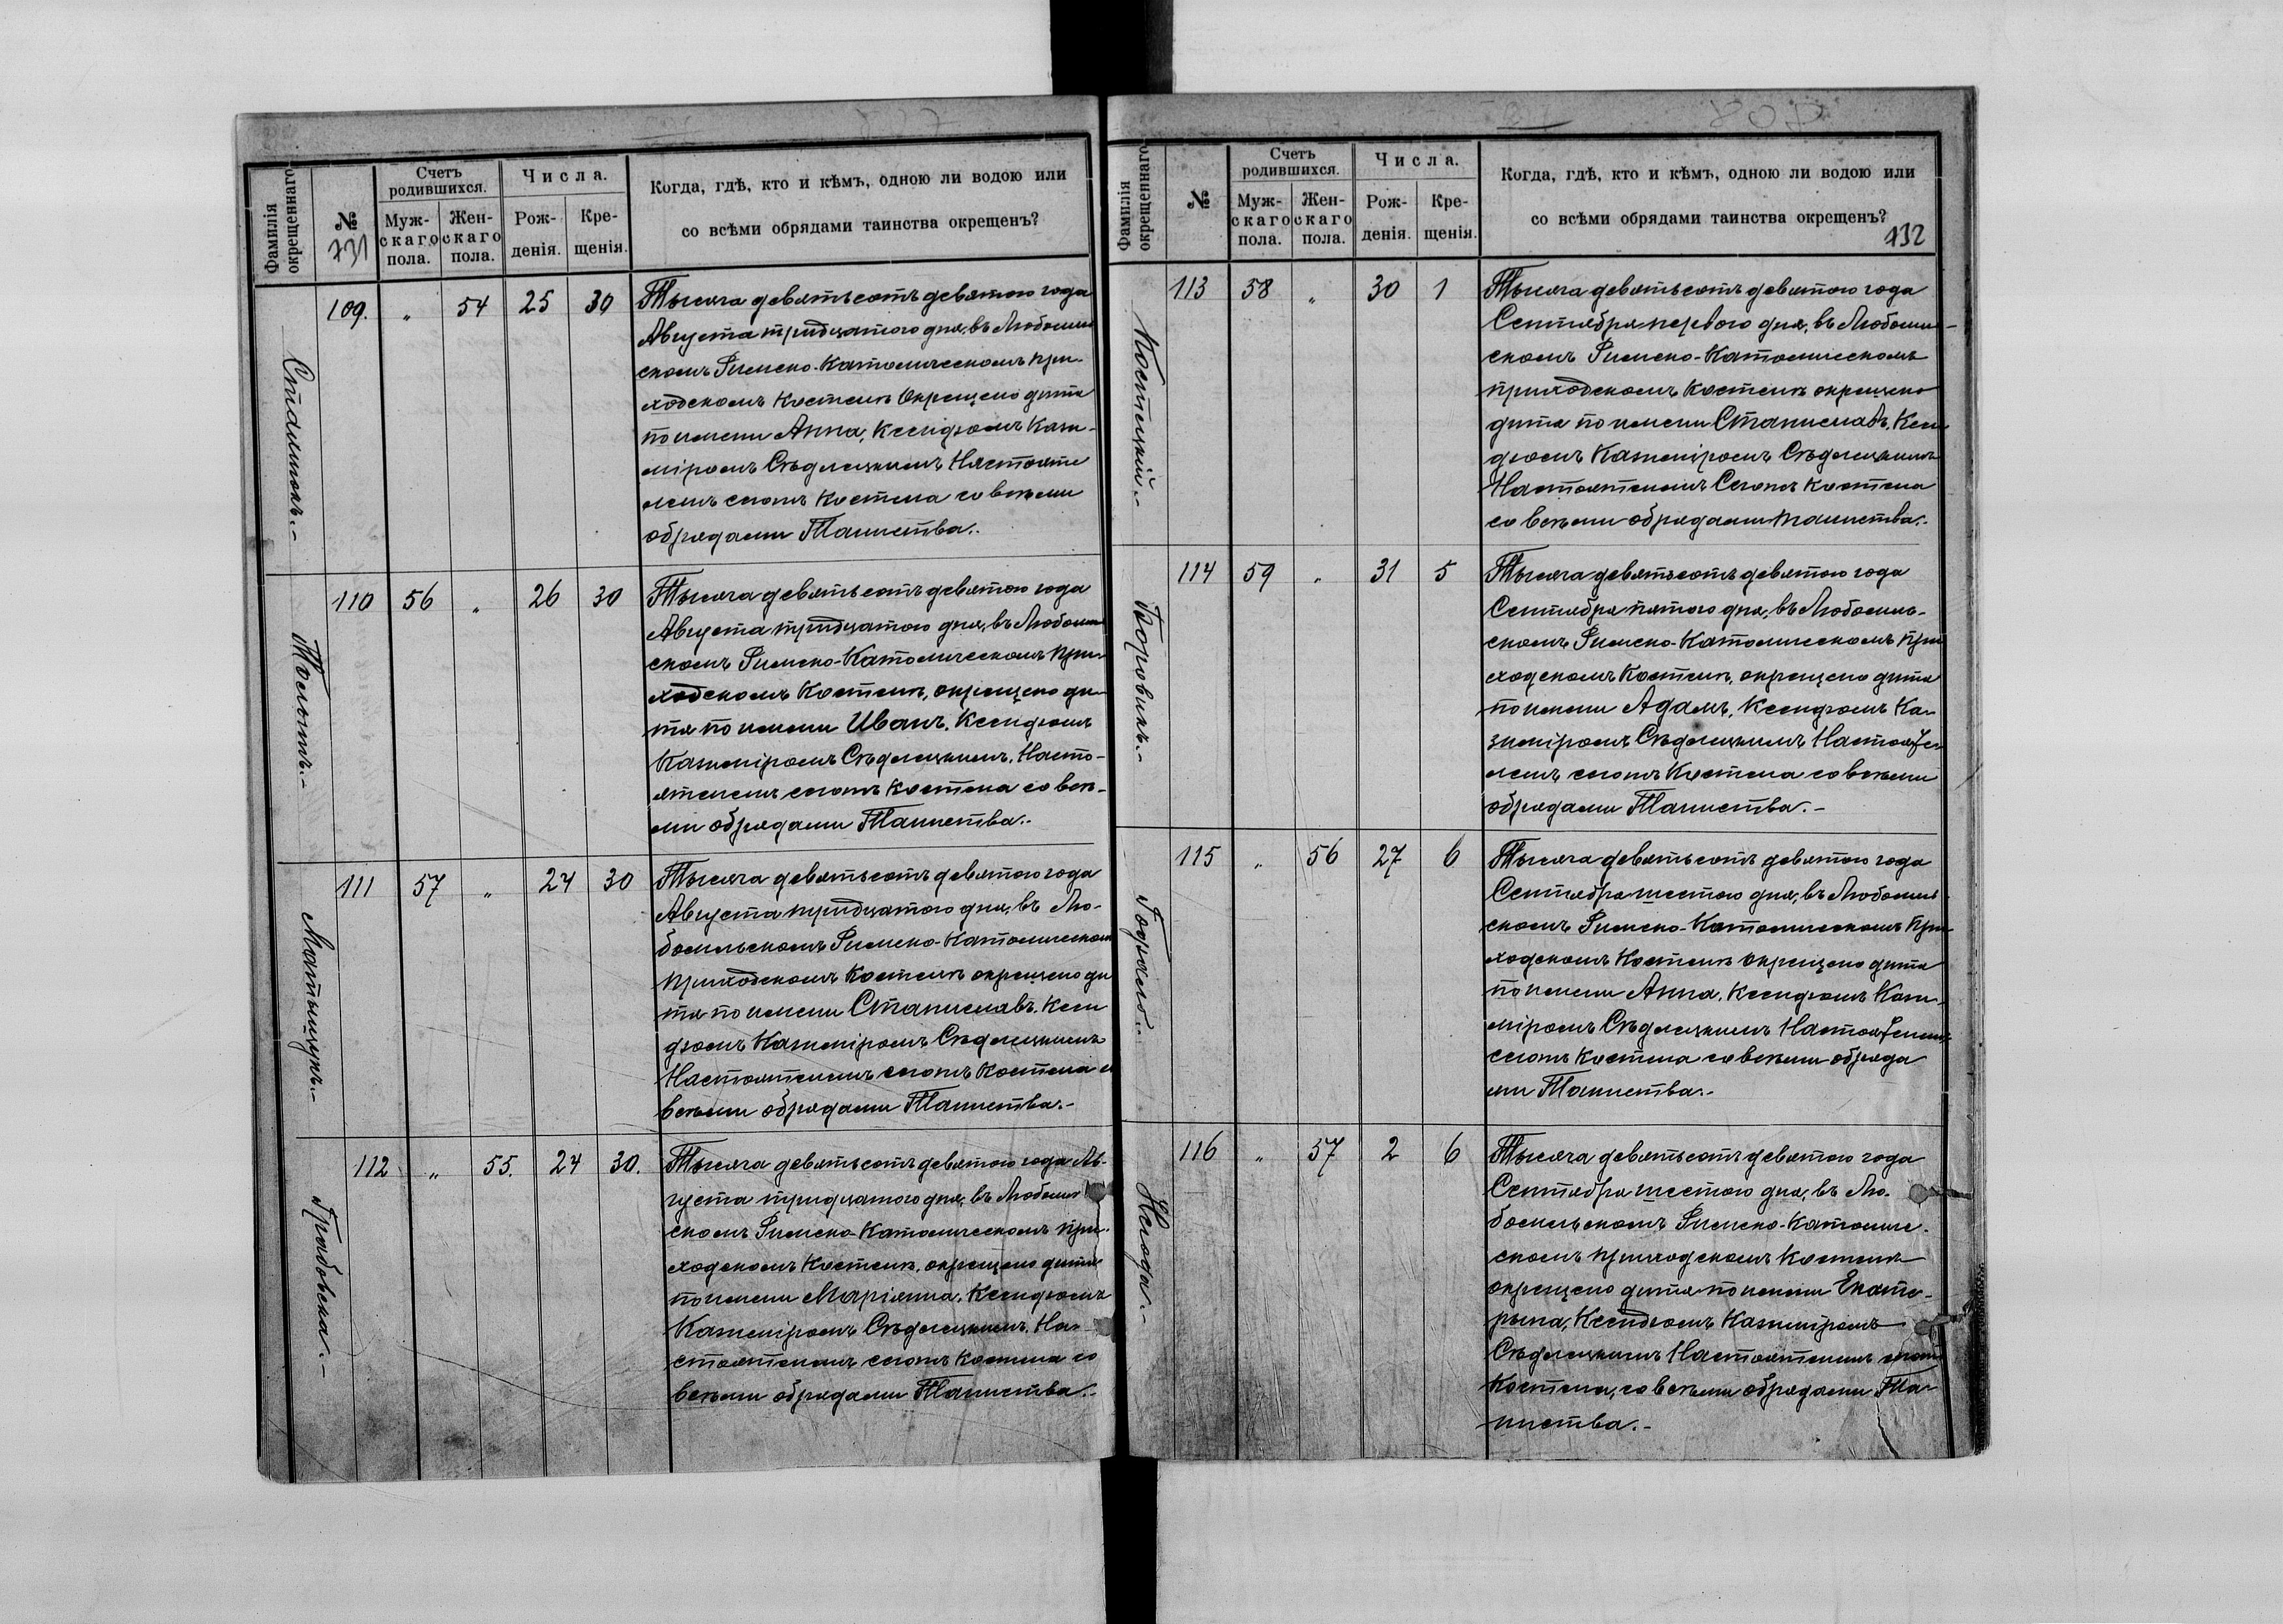 Фамилія окрещеннаго
№
731
Счетъ родившихся.
Муж-скаго пола.
Жен-скаго пола.
Числа.
Рож-денія.
Кре-щенія.
Когда, гдѣ, кто и кѣмъ, одною ли водою или
со всѣми обрядами таинства окрещенъ?
109. " 54 25 30
Тысяча девятьсотъ девятого года
Августа тридцатого дня, въ Любомль
скомъ Римско-Католическомъ при-
ходскомъ Костелѣ окрещено дитя
по имени Анна, Ксендзомъ Кази-
міромъ Сѣдлецкимъ Настояте
лемъ сего Костела со всѣми
обрядами Таинства.-
110 56 " 26 30
Тысяча девятьсотъ девятого года
Августа тридцатого дня, въ Любомль
скомъ Римско-Католическомъ При-
ходскомъ Костелѣ, окрещено ди-
тя по имени Иванъ, Ксендзомъ
Казиміромъ Сѣдлецкимъ, Насто-
ятелемъ сего Костела со всѣ-
ми обрядами Таинства.-
111 57 " 24 30
Тысяча девятьсотъ девятого года
Августа тридцатого дня, въ Лю-
бомльскомъ Римско-Католическомъ
Приходскомъ Костелѣ окрещено ди
тя по имени Станиславъ, Ксен
дзомъ Казиміромъ Сѣдлецкимъ
Настоятелемъ сего Костела со
всѣми обрядами Таинства.-
112 " 55. 24 30.
Грабовска.-
Тысяча девятьсотъ девятого года Ав-
густа тридцатого дня, въ Любомль
скомъ Римско-Католическомъ При-
ходскомъ Костелѣ, окрещено дитя
по имени Маріянна, Ксендзомъ
Казиміромъ Сѣдлецкимъ, На-
стоятелемъ сего Костела со
всѣми обрядами Таинства.-
Фамилія окрещеннаго
№
Счетъ родившихся.
Муж-скаго пола.
Жен-скаго пола.
Числа.
Рож-денія.
Кре-щенія.
Когда, гдѣ, кто и кѣмъ, одною ли водою или
со всѣми обрядами таинства окрещенъ?
132
113 58 " 30 1
Тысяча девятьсотъ девятого года
Сентября перваго дня, въ Любомль-
скомъ Римско-Католическомъ
приходскомъ Костелѣ окрещено
дитя по имени Станиславъ, Ксен
дзомъ Казиміромъ Сѣдлецкимъ
Настоятелемъ Сего Костела
со всѣми обрядами таинства.-
114 59 " 31 5
Боровикъ.-
Тысяча девятьсотъ девятого года
Сентября пятого дня, въ Любомль-
скомъ Римско-Католическомъ При
ходскомъ Костелѣ, окрещено дитя
по имени Адамъ, Ксендзомъ Ка-
зиміромъ Сѣдлецкимъ Настояте
лемъ сего Костела со всѣми
обрядами Таинства.-
115 " 56 27 6
Тысяча девятьсотъ девятого года
Сентября шестого дня, въ Любомль-
скомъ Римско-Католическомъ При-
ходскомъ Костелѣ окрещено дитя
по имени Анна, Ксендзомъ Кази-
міромъ Сѣдлецкимъ Настоятелемъ
сего Костела со всѣми обряда
ми Таинства.-
116 " 57 2 6
Тысяча девятьсотъ девятого года
Сентября шестого дня, въ Лю-
бомльскомъ Римско-Католиче-
скомъ приходскомъ Костелѣ
окрещено дитя по имени Екате-
рына, Ксендзомъ Казиміромъ
Сѣдлецкимъ Настоятелемъ сего
Костела, со всѣми обрядами Та-
инства.-